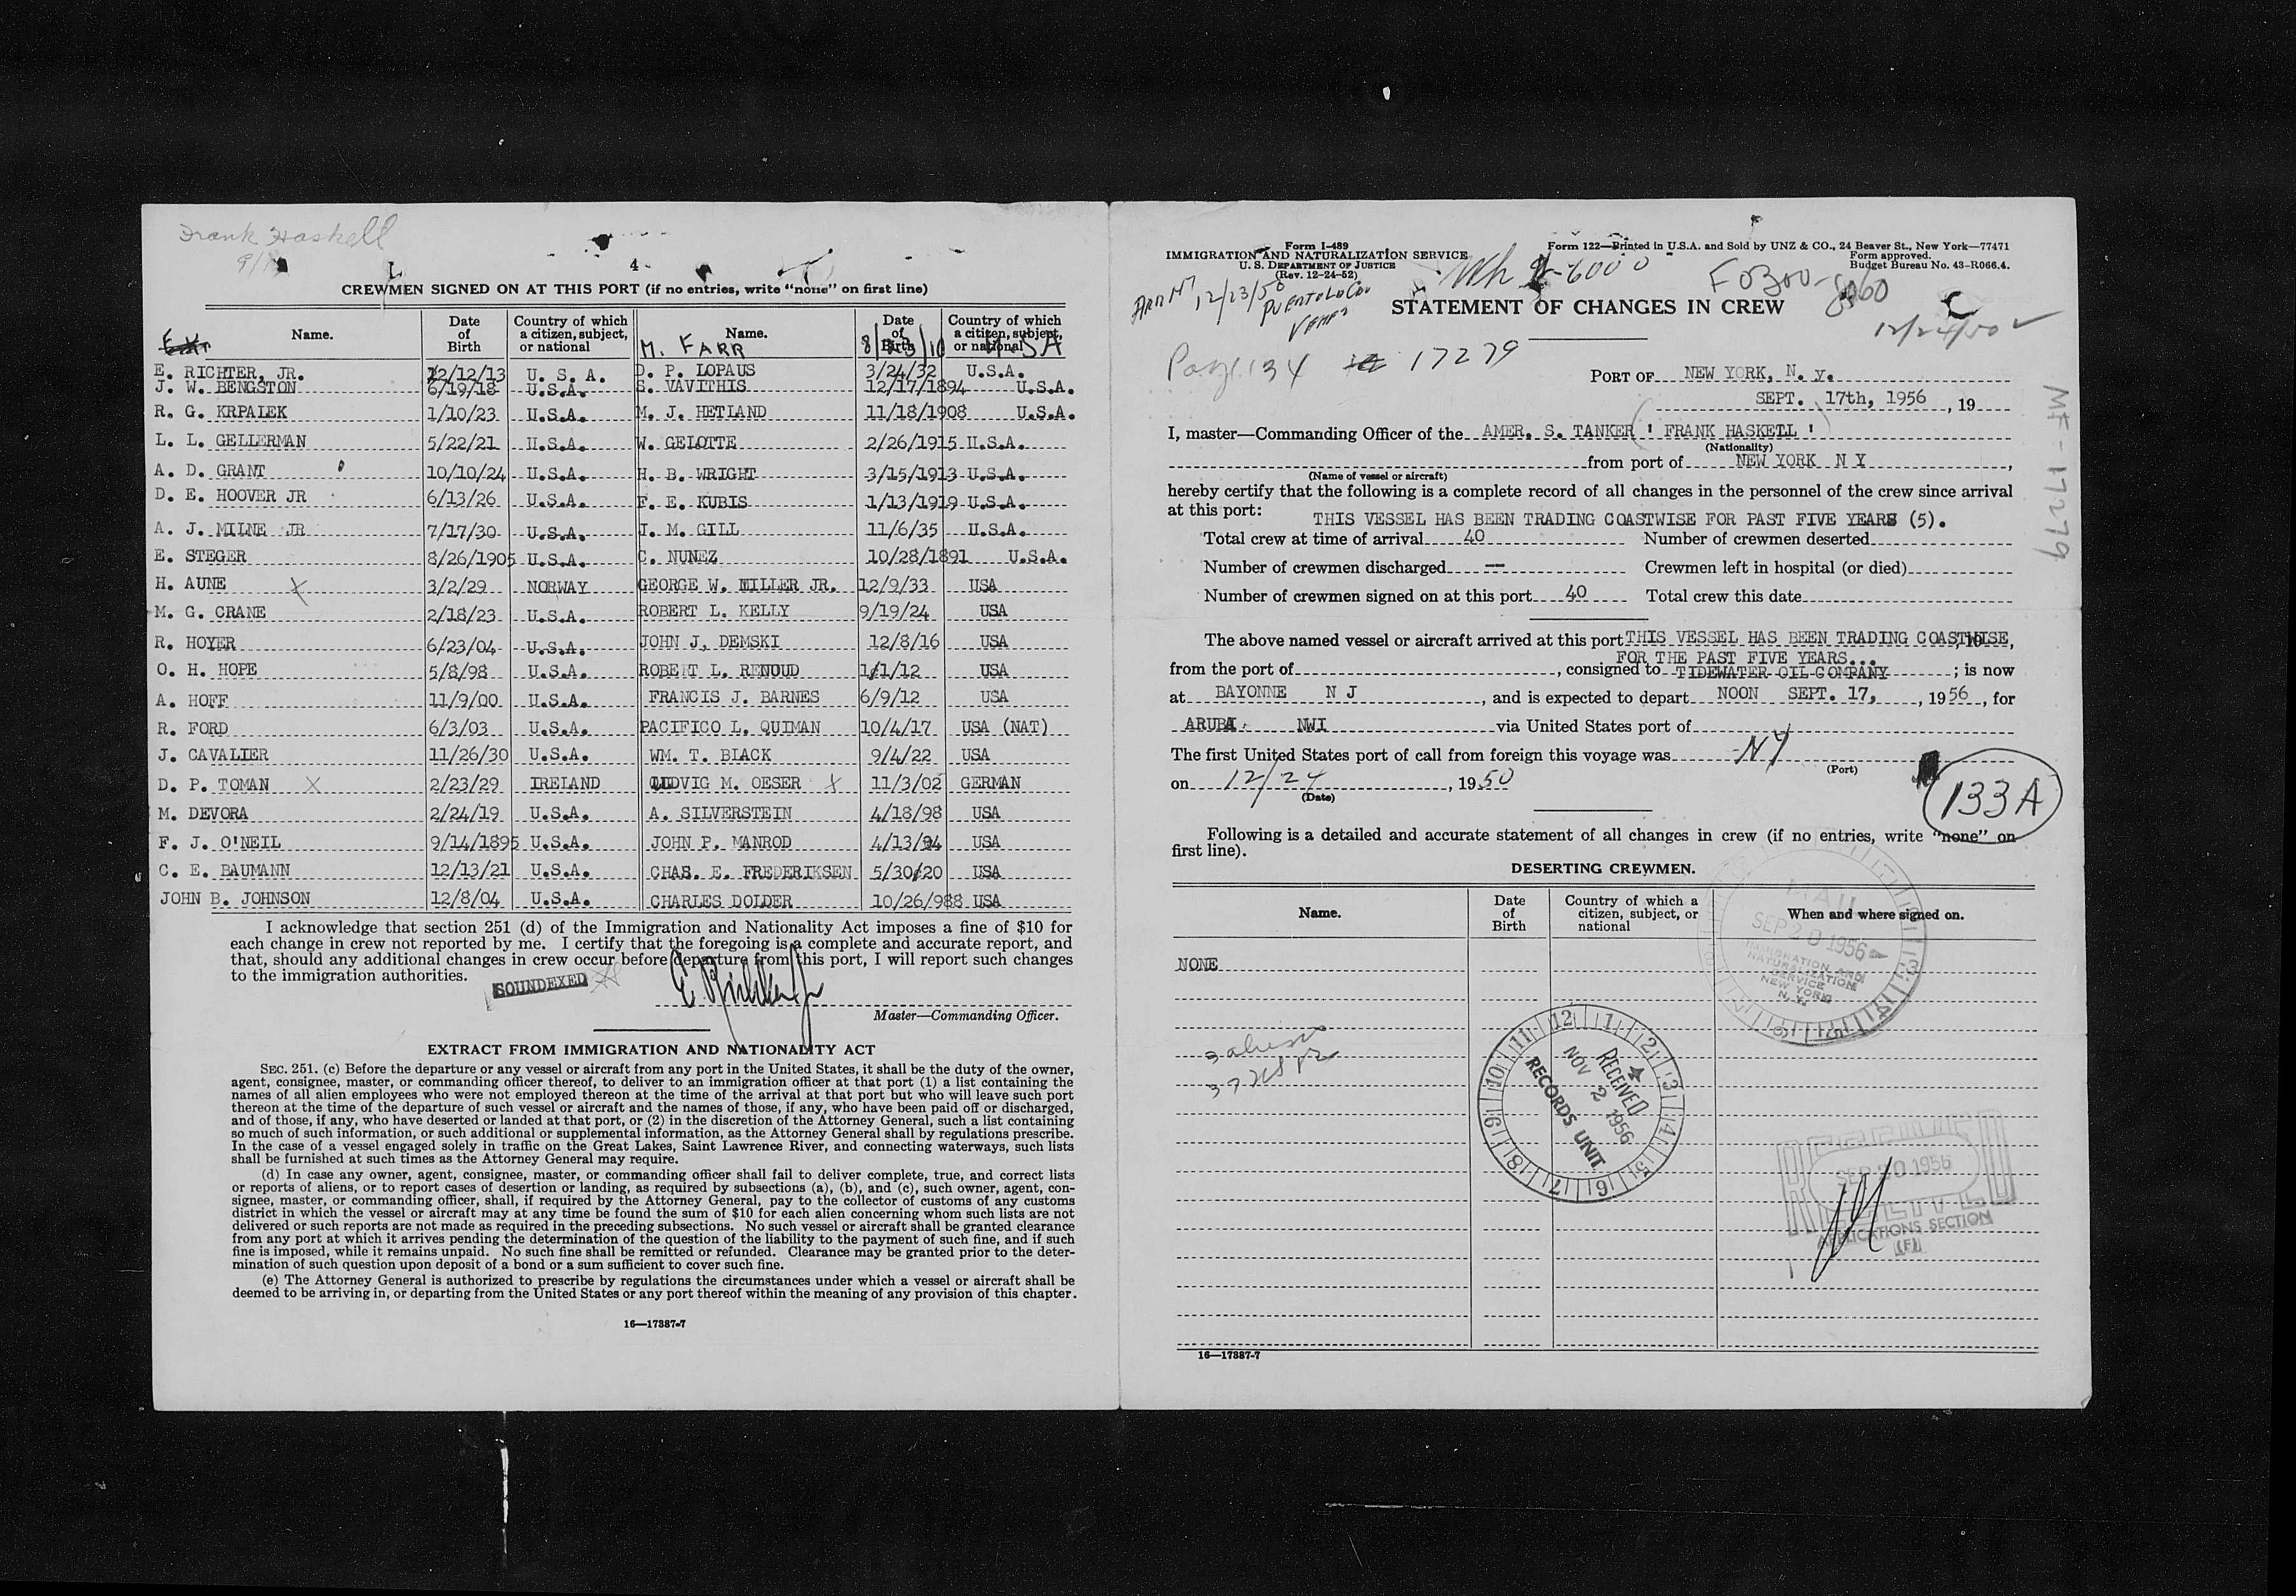 Frank Haskell
4
CREWMEN SIGNED ON AT THIS PORT (if no entries, write "none" on first line)
Name. Date of Birth Country of which a citizen, subject, or national Name. Date of Birth Country of which a citizen, subject, or national
M. FARR 8/23/10 U.S.A
E. RICHTER, JR. 12/12/13 U. S. A. D. P. LOPAUS 3/24/32 U.S.A.
J. W. BENGSTON 6/19/18 U.S.A. S. VAVITHIS 12/17/1894 U.S.A.
R. G. KRPALEK 1/10/23 U.S.A. M. J. HETLAND 11/18/1908 U.S.A.
L. L. GELLERMAN 5/22/21 U.S.A. W. GELOTTE 2/26/1915 U.S.A.
A. D. GRANT 10/10/24 U.S.A. H. B. WRIGHT 3/15/1913 U.S.A.
D. E. HOOVER JR 6/13/26 U.S.A. F. E. KUBIS 1/13/1919 U.S.A.
A. J. MILNE JR 7/17/30 U.S.A. J. M. GILL 11/6/35 U.S.A.
E. STEGER 8/26/1905 U.S.A. C. NUNEZ 10/28/1891 U.S.A.
H. AUNE X 3/2/29 NORWAY GEORGE W. MILLER JR. 12/9/33 USA
M. G. CRANE 2/18/23 U.S.A. ROBERT L. KELLY 9/19/24 USA
R. HOYER 6/23/04 U.S.A. JOHN J, DEMSKI 12/8/16 USA
O. H. HOPE 5/8/98 U.S.A. ROBERT L. RENOUD 1/1/12 USA
A. HOFF 11/9/00 U.S.A. FRANCIS J. BARNES 6/9/12 USA
R. FORD 6/3/03 U.S.A. PACIFICO L. QUIMAN 10/4/17 USA (NAT)
J. CAVALIER 11/26/30 U.S.A. WM. T. BLACK 9/4/22 USA
D. P. TOMAN X 2/23/29 IRELAND LUDVIG M. OESER X 11/3/02 GERMAN
M. DEVORA 2/24/19 U.S.A. A. SILVERSTEIN 4/18/98 USA
F. J. O'NEIL 9/14/1895 U.S.A. JOHN P. MANROD 4/13/94 USA
C. E. BAUMANN 12/13/21 U.S.A. CHAS. E. FREDERIKSEN 5/30/20 USA
JOHN B. JOHNSON 12/8/04 U.S.A. CHARLES DOLDER 10/26/988 USA
I acknowledge that section 251 (d) of the Immigration and Nationality Act imposes a fine of $10 for
each change in crew not reported by me. I certify that the foregoing is a complete and accurate report, and
that, should any additional changes in crew occur before departure from this port, I will report such changes
to the immigration authorities.
SOUNDEXED
E Richter Jr
Master—Commanding Officer.
EXTRACT FROM IMMIGRATION AND NATIONALITY ACT
SEC. 251. (c) Before the departure or any vessel or aircraft from any port in the United States, it shall be the duty of the owner,
agent, consignee, master, or commanding officer thereof, to deliver to an immigration officer at that port (1) a list containing the
names of all alien employees who were not employed thereon at the time of the arrival at that port but who will leave such port
thereon at the time of the departure of such vessel or aircraft and the names of those, if any, who have been paid off or discharged,
and of those, if any, who have deserted or landed at that port, or (2) in the discretion of the Attorney General, such a list containing
so much of such information, or such additional or supplemental information, as the Attorney General shall by regulations prescribe.
In the case of a vessel engaged solely in traffic on the Great Lakes, Saint Lawrence River, and connecting waterways, such lists
shall be furnished at such times as the Attorney General may require.
(d) In case any owner, agent, consignee, master, or commanding officer shall fail to deliver complete, true, and correct lists
or reports of aliens, or to report cases of desertion or landing, as required by subsections (a), (b), and (c), such owner, agent, con-
signee, master, or commanding officer, shall, if required by the Attorney General, pay to the collector of customs of any customs
district in which the vessel or aircraft may at any time be found the sum of $10 for each alien concerning whom such lists are not
delivered or such reports are not made as required in the preceding subsections. No such vessel or aircraft shall be granted clearance
from any port at which it arrives pending the determination of the question of the liability to the payment of such fine, and if such
fine is imposed, while it remains unpaid. No such fine shall be remitted or refunded. Clearance may be granted prior to the deter-
mination of such question upon deposit of a bond or a sum sufficient to cover such fine.
(e) The Attorney General is authorized to prescribe by regulations the circumstances under which a vessel or aircraft shall be
deemed to be arriving in, or departing from the United States or any port thereof within the meaning of any provision of this chapter.
16—17387-7
Form I-489
IMMIGRATION AND NATURALIZATION SERVICE
U. S. DEPARTMENT OF JUSTICE
(Rev. 12-24-52)
Form 122—Printed in U.S.A. and Sold by UNZ & CO., 24 Beaver St., New York—77471
Form approved.
Budget Bureau No. 43-R066.4.
12/23/50
F0300-8060
12/24/50
STATEMENT OF CHANGES IN CREW
Page 134 17279
MF-17279
PORT OF NEW YORK, N. Y.
SEPT. 17th, 1956 , 19
I, master—Commanding Officer of the AMER. S. TANKER ' FRANK HASKELL '
(Nationality)
from port of NEW YORK N Y ,
(Name of vessel or aircraft)
hereby certify that the following is a complete record of all changes in the personnel of the crew since arrival
at this port:
THIS VESSEL HAS BEEN TRADING COASTWISE FOR PAST FIVE YEARS (5).
Total crew at time of arrival 40 Number of crewmen deserted
Number of crewmen discharged — Crewmen left in hospital (or died)
Number of crewmen signed on at this port 40 Total crew this date
The above named vessel or aircraft arrived at this port THIS VESSEL HAS BEEN TRADING COASTWISE, 19
FOR THE PAST FIVE YEARS...
from the port of , consigned to TIDEWATER OIL COMPANY ; is now
at BAYONNE N J , and is expected to depart NOON SEPT. 17, , 1956 , for
ARUBA. NWI via United States port of
The first United States port of call from foreign this voyage was NY
(Port)
on 12/24 , 1950
(Date)
133A
Following is a detailed and accurate statement of all changes in crew (if no entries, write "none" on
first line).
DESERTING CREWMEN.
Name. Date of Birth Country of which a citizen, subject, or national When and where signed on.
NONE
MAIL
SEP 20 1956
IMMIGRATION AND
NATURALIZATION
SERVICE
NEW YORK
N. Y.
RECEIVED
NOV 2 1956
RECORDS UNIT
RECEIVED
SEP 20 1956
APPLICATIONS SECTION
(F)
16—17387-7